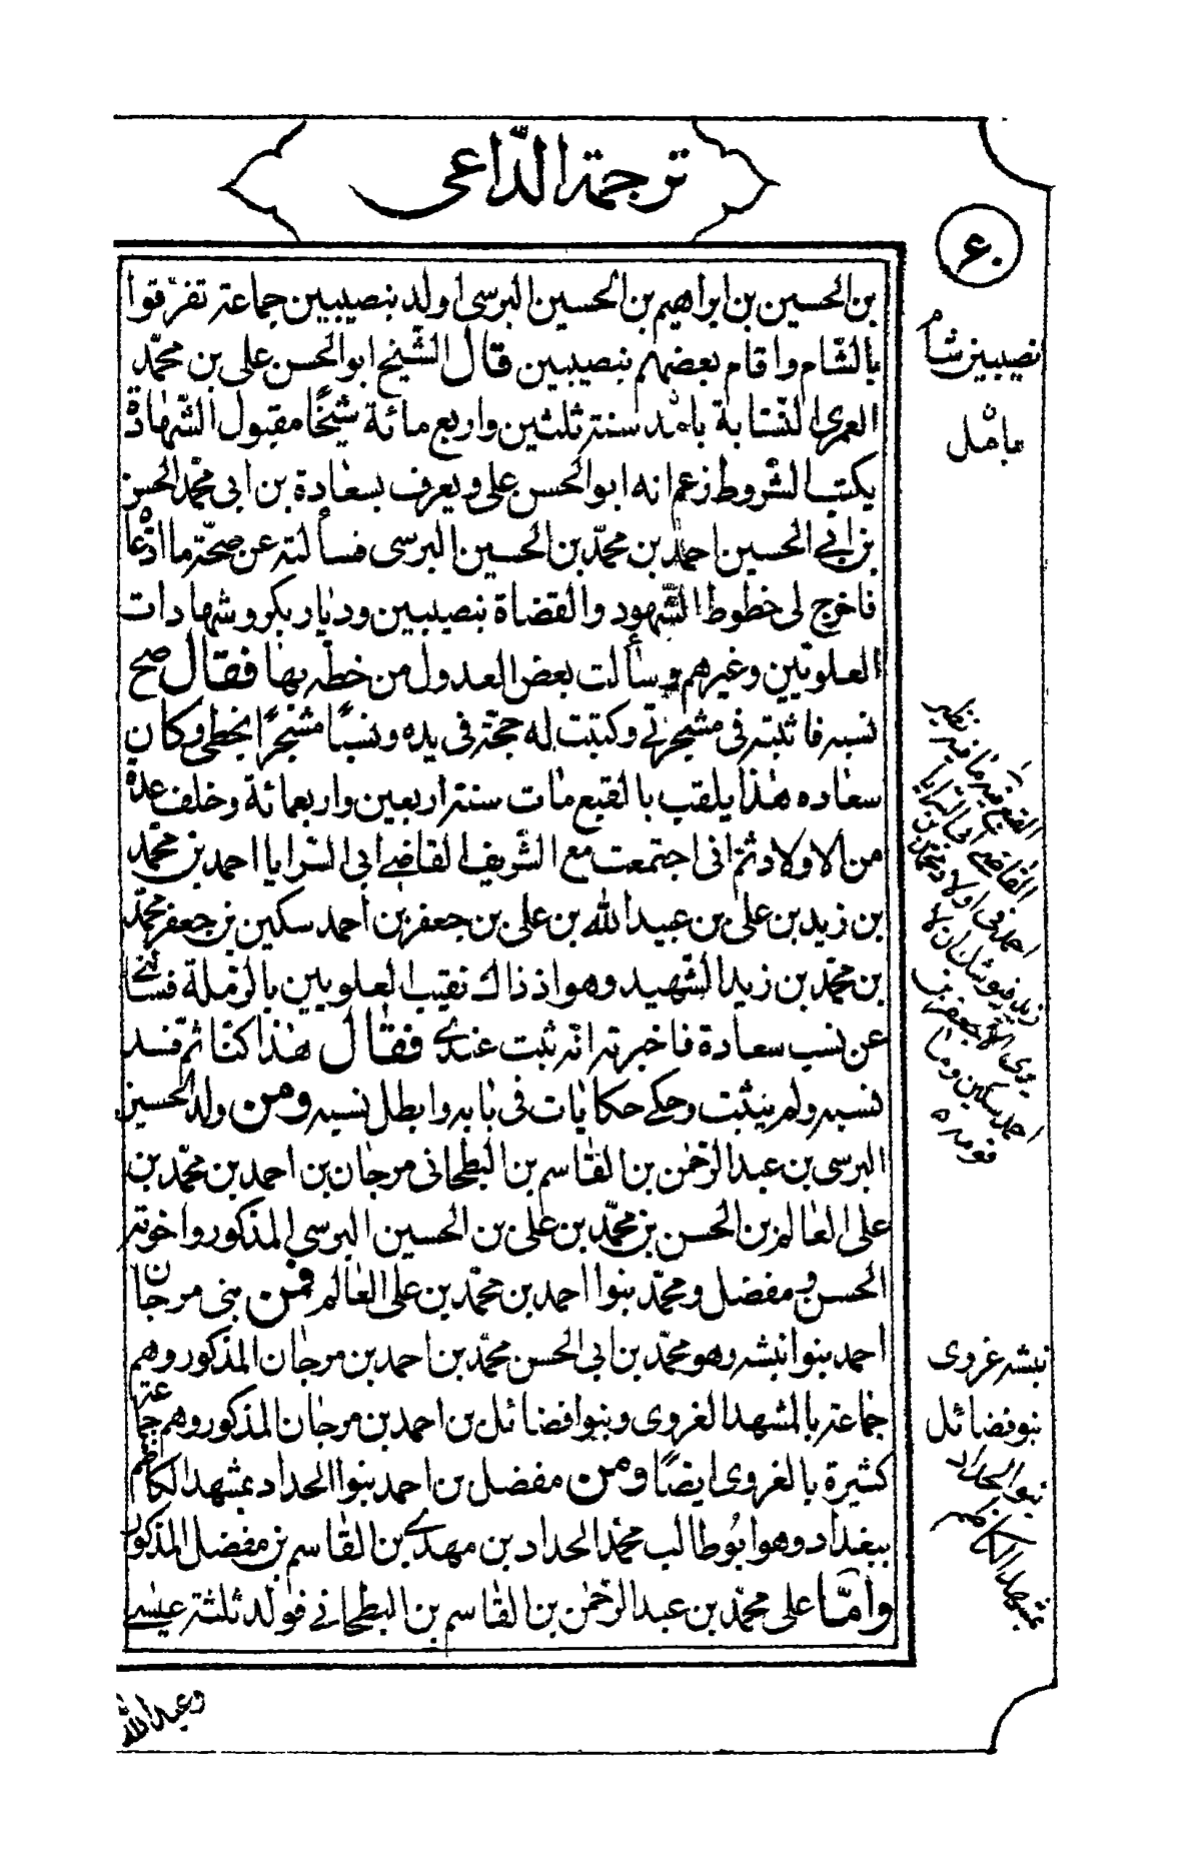 ترجمة الدّاعى
۶۰
بن الحسين بن ابراهيم بن الحسين البرسى اولد بنصيبين جماعة تفرّقوا
بالشّام واقام بعضهم بنصيبين قال الشّيخ ابو الحسن على بن محمّد
العمرى النسّابة بامد سنة ثلثين واربع مائة شيخًا مقبول الشّهادة
يكتب الشروط زعم انه ابو الحسن على ويعرف بسعادة بن ابى محمّد الحسن
بن ابى الحسين احمد بن محمّد بن الحسين البرسى فسألته عن صحّة ما ادّعاه
فاخرج لى خطوط الشّهود والقضاة بنصيبين وديار بكر وشهادات
العلويّين وغيرهم وسألت بعض العدول من خطّه بها فقال صح
نسبه فاثبته فى مشجرتى وكتبت له حجّة فى يده ونسبًا مشجرًا بخطى وكان
سعاده هذا يلقب بالقبع مات سنة اربعين واربعمائة وخلف عدة
من الاولاد ثم انى اجتمعت مع الشّريف القاضى ابى السّرايا احمد بن محمّد
بن زيد بن على بن عبيد الله بن على بن جعفر بن احمد سكين بن جعفر محمّد
بن محمّد بن زيد الشّهيد وهو اذ ذاك نقيب العلويين بالرّملة فسألنى
عن نسب سعادة فاخبرته انّه ثبت عندى فقال هذا كنّا ثم فسد
نسبه ولم يثبت وحكى حكايات فى بابه وابطل نسبه ومن ولد الحسين
البرسى بن عبد الرّحمن بن القاسم بن البطحانى مرجان بن احمد بن محمّد بن
على العالم بن الحسن بن محمّد بن على بن الحسين البرسى المذكور واخوته
الحسن و مفضل ومحمّد بنوا احمد بن محمّد بن على العالم فمن بنى مرجان
احمد بنوا نبشه وهو محمّد بن ابى الحسن محمّد بن احمد بن مرجان المذكور وهم
جماعة بالمشهد الغروى وبنوا فضائل بن احمد بن مرجان المذكور وهم جماعة
كثيرة بالغروى ايضًا ومن مفضل بن احمد بنوا الحداد بمشهد الكاظم
ببغداد وهو ابو طالب محمّد الحداد بن مهدى بن القاسم بن مفضل المذكور
وامّا على محمّد بن عبد الرّحمن بن القاسم بن البطحانى فولد ثلثة عيسى
نصيبين شام
نبشه غروى
بنو فضائل
بنو الحداد
بمشهد الكاظم
وعبد الله